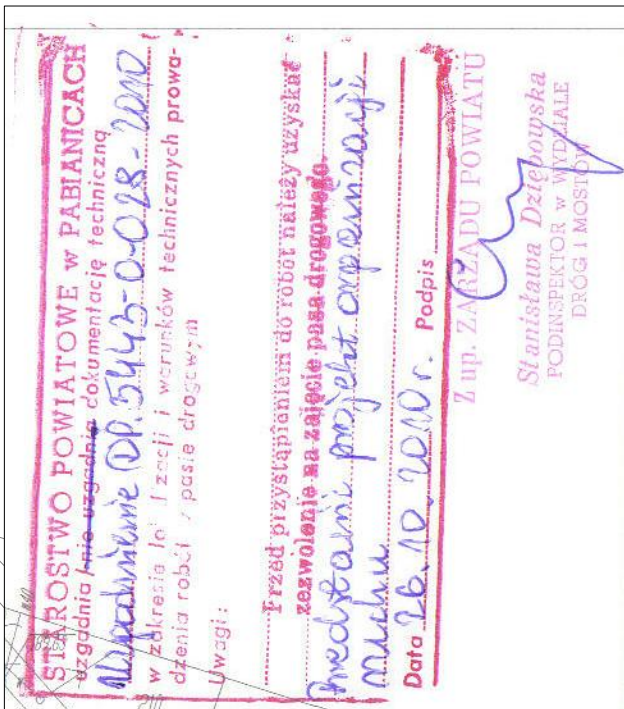 STAROSTWO POWIATOWE w PABIANICACH
uzgadnia / nie uzgadnia dokumentację techniczną
Uzgodnienie DP.5443-0-028-2010
w zakresie lokalizacji i warunków technicznych prowa-
dzenia robót w pasie drogowym
Uwagi:
Przed przystąpieniem do robót należy uzyskać
zezwolenie na zajęcie pasa drogowego.
Przedstawić projekt organizacji
ruchu
Data 26.10.2010r. Podpis
Z up. ZARZĄDU POWIATU
Stanisława Dziębowska
PODINSPEKTOR w WYDZIALE
DRÓG I MOSTÓW